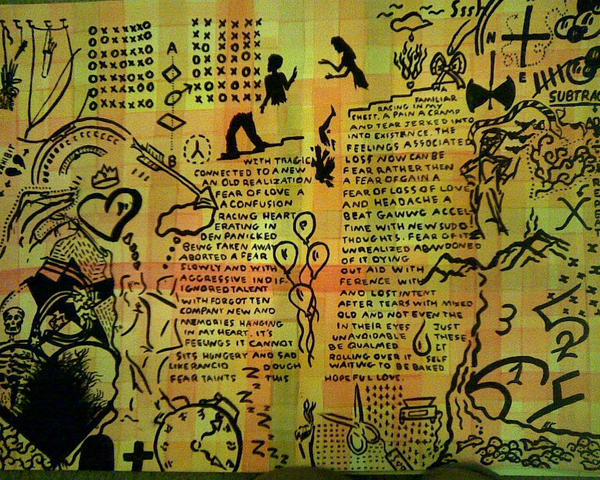 SSSH
N
E
SUBTRAC
A
B
WITH TRAGIC
CONNECTED TO A NEW
AN OLD REALIZATION
A FEAR OF LOVE A
A CONFUSION
RACING HEART
ERATING IN
DEN PANICKED
BEING TAKEN AWAY
ABORTED A FEAR
SLOWLY AND WITH
AGGRESSIVE INDIF
IGNORED TALENT
WITH FORGOTTEN
COMPANY NEW AND
MEMORIES HANGING
IN MY HEART. IT'S
FEELINGS IT CANNOT
SITS HUNGRY AND SAD
LIKE RANCID DOUGH
FEAR TAINTS THIS
FAMILIAR
RACING IN MY
CHEST. A PAIN A CRAMP
AND TEAR JERKED INTO
INTO EXISTENCE. THE
FEELINGS ASSOCIATED
LOSS NOW CAN BE
FEAR RATHER THEN
A FEAR OF GAIN A
FEAR OF LOSS OF LOVE
AND HEADACHE A
BEAT GAWWG ACCEL
TIME WITH NEW SUDD
THOUGHTS. FEAR OF IT
UNREALIZED ABANDONED
OF IT DYING
OUT AID WITH
FERENCE WITH
AND LOST INTENT
AFTER TEARS WITH MIXED
OLD AND NOT EVEN THE
IN THEIR EYES JUST
UNAVOIDABLE THESE
BE QUALMED IT
ROLLING OVER IT SELF
WAITING TO BE BAKED
HOPEFUL LOVE.
Z Z Z Z Z Z
X
3
2
5